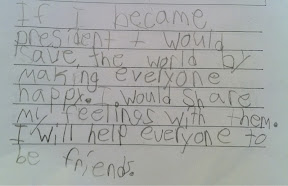 If I became
president I would
save the world by
making everyone
happy. I would share
my feelings with them.
I will help everyone to
be friends.